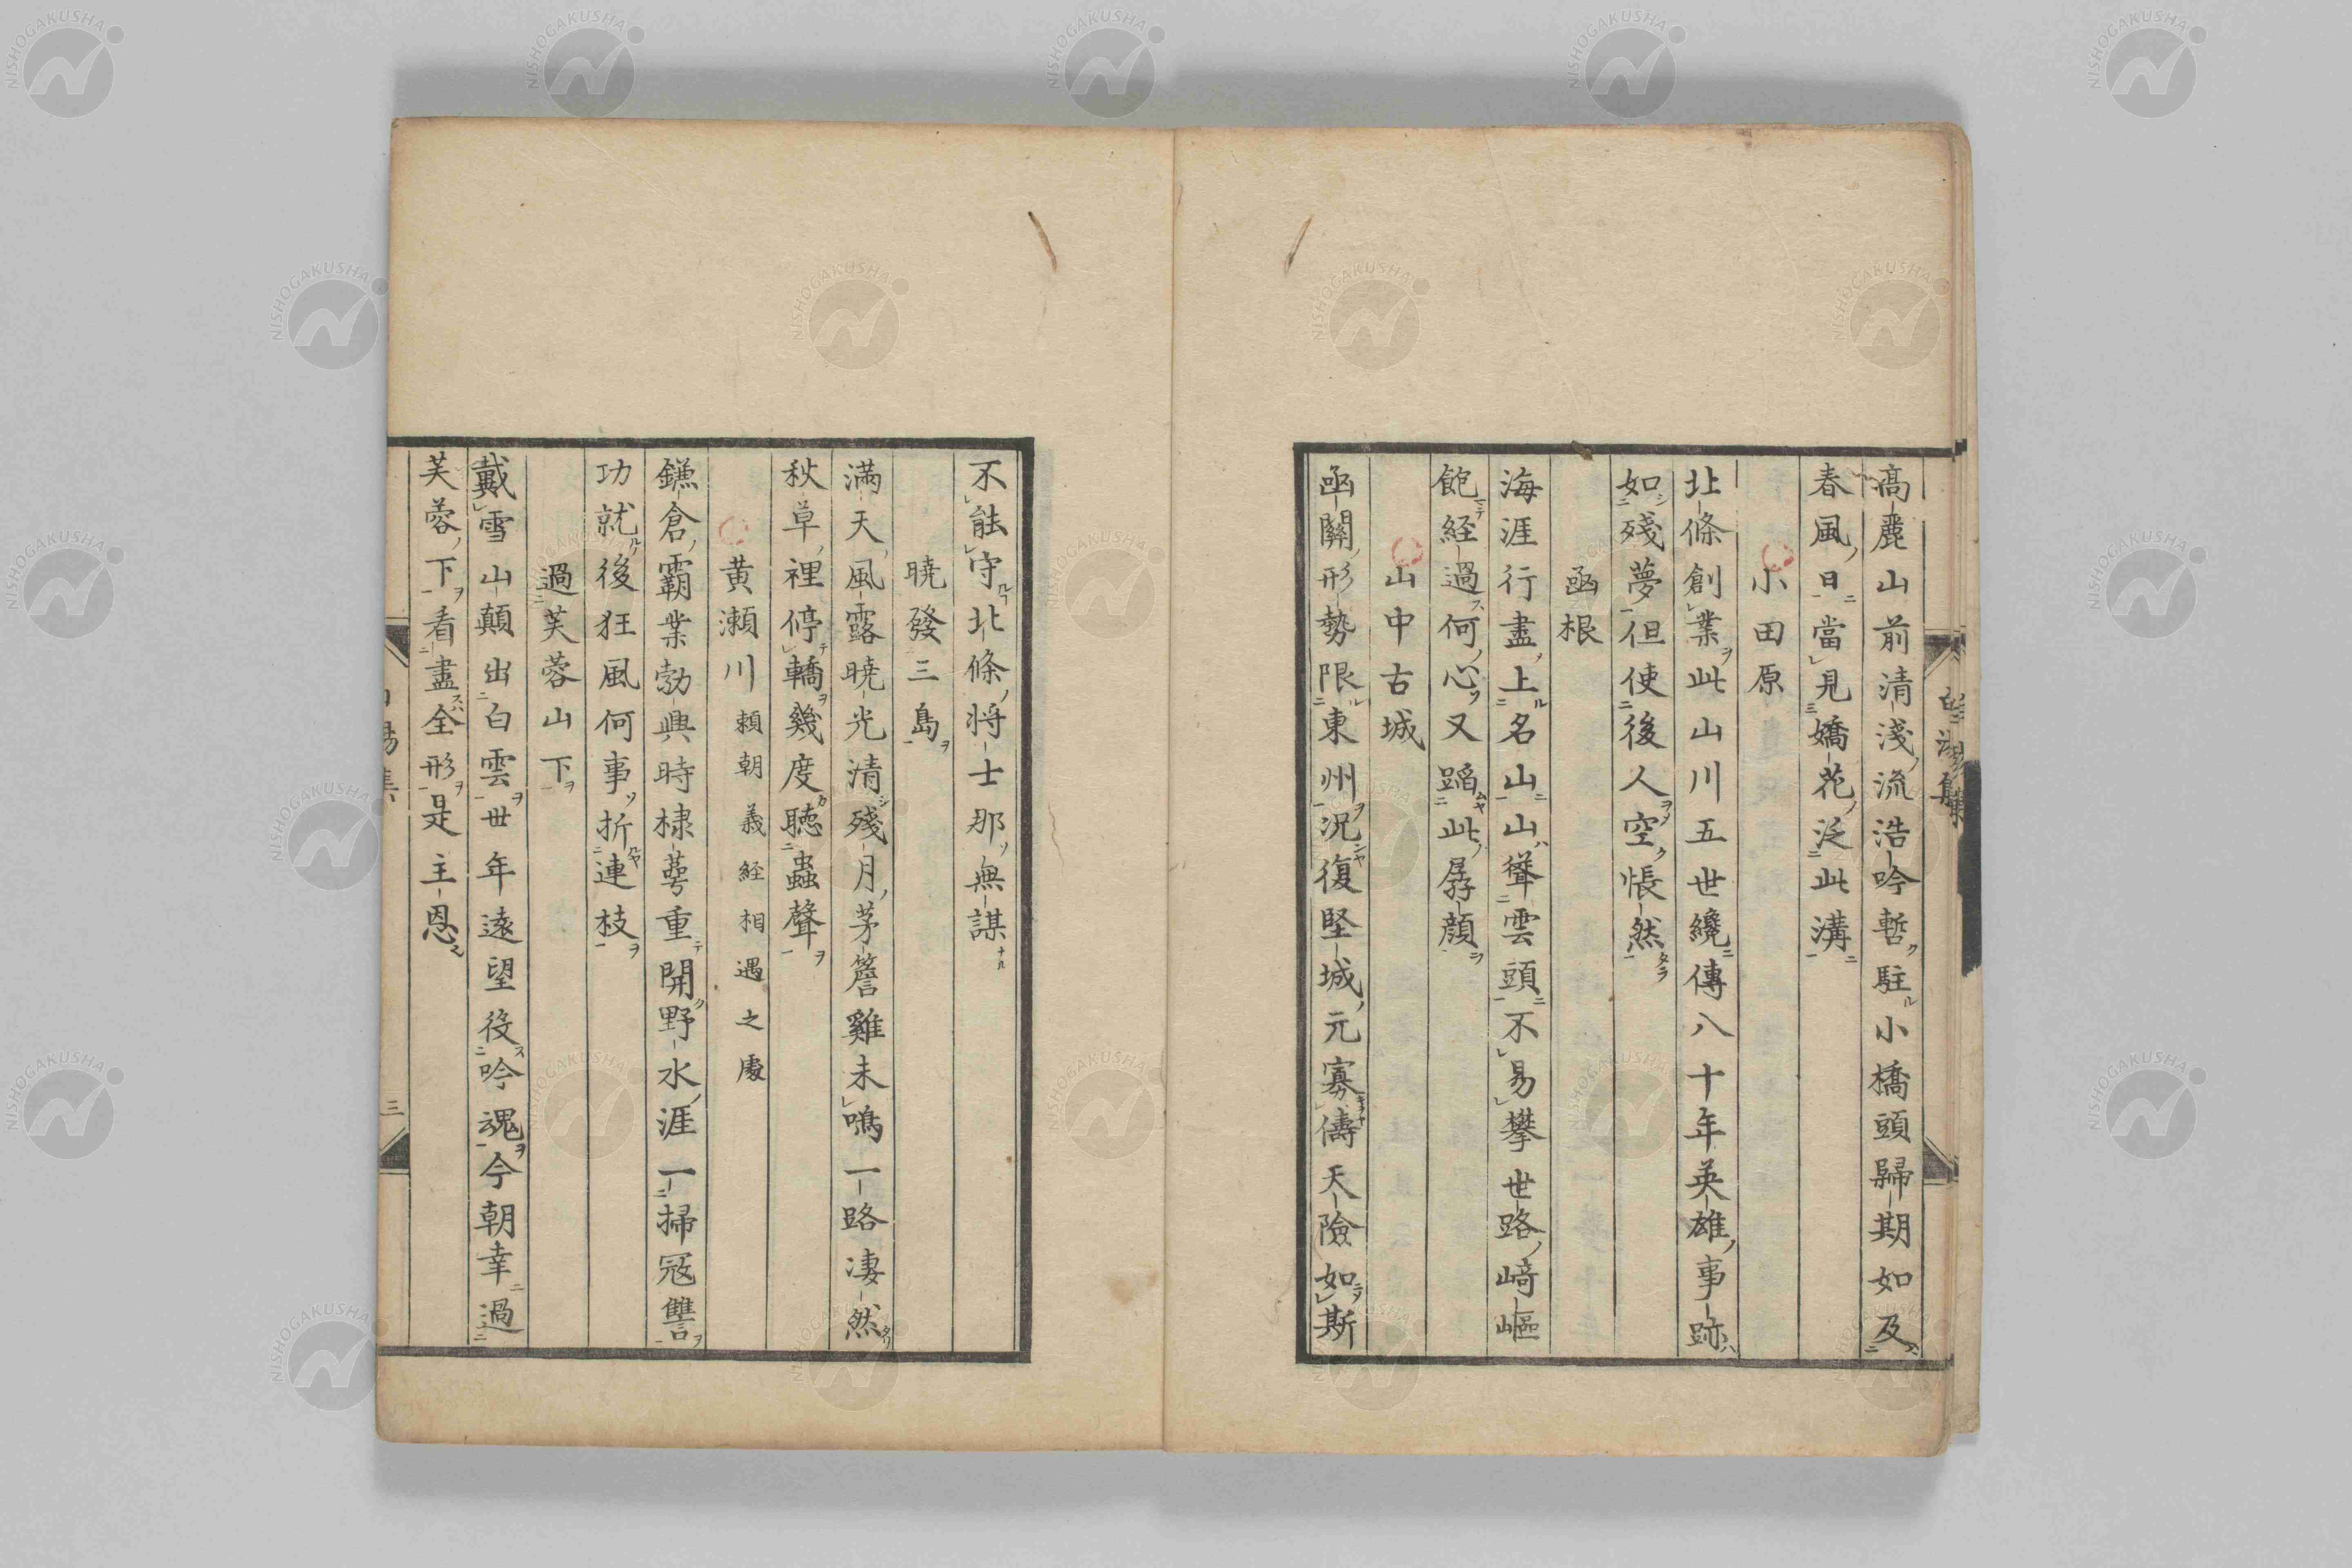 高麗山前清淺流浩吟暫駐小橋頭歸期如及
春風日當見嬌花泛此溝
小田原
北條創業此山川五世纔傳八十年英雄事跡
如殘夢但使後人空悵然
凾根
海涯行盡上名山山聳雲頭不易攀世路﨑嶇
飽経過何心又蹈此孱顔
山中古城
凾關形勢限東州況復堅城元寡儔天險如斯
不能守北條将士那無謀
曉發三島
満天風露暁光清殘月茅簷雞未鳴一路凄然
秋草裡停轎幾度聴蟲聲
黄瀬川頼朝義経相遇之處
鎌倉霸業勃興時棣萼重開野水涯一掃冦讐
功就後狂風何事折連枝
過芙蓉山下
戴雪山顛出白雲卅年遠望役吟魂今朝幸過
芙蓉下看盡全形是主恩
三
NISHOGAKUSHA